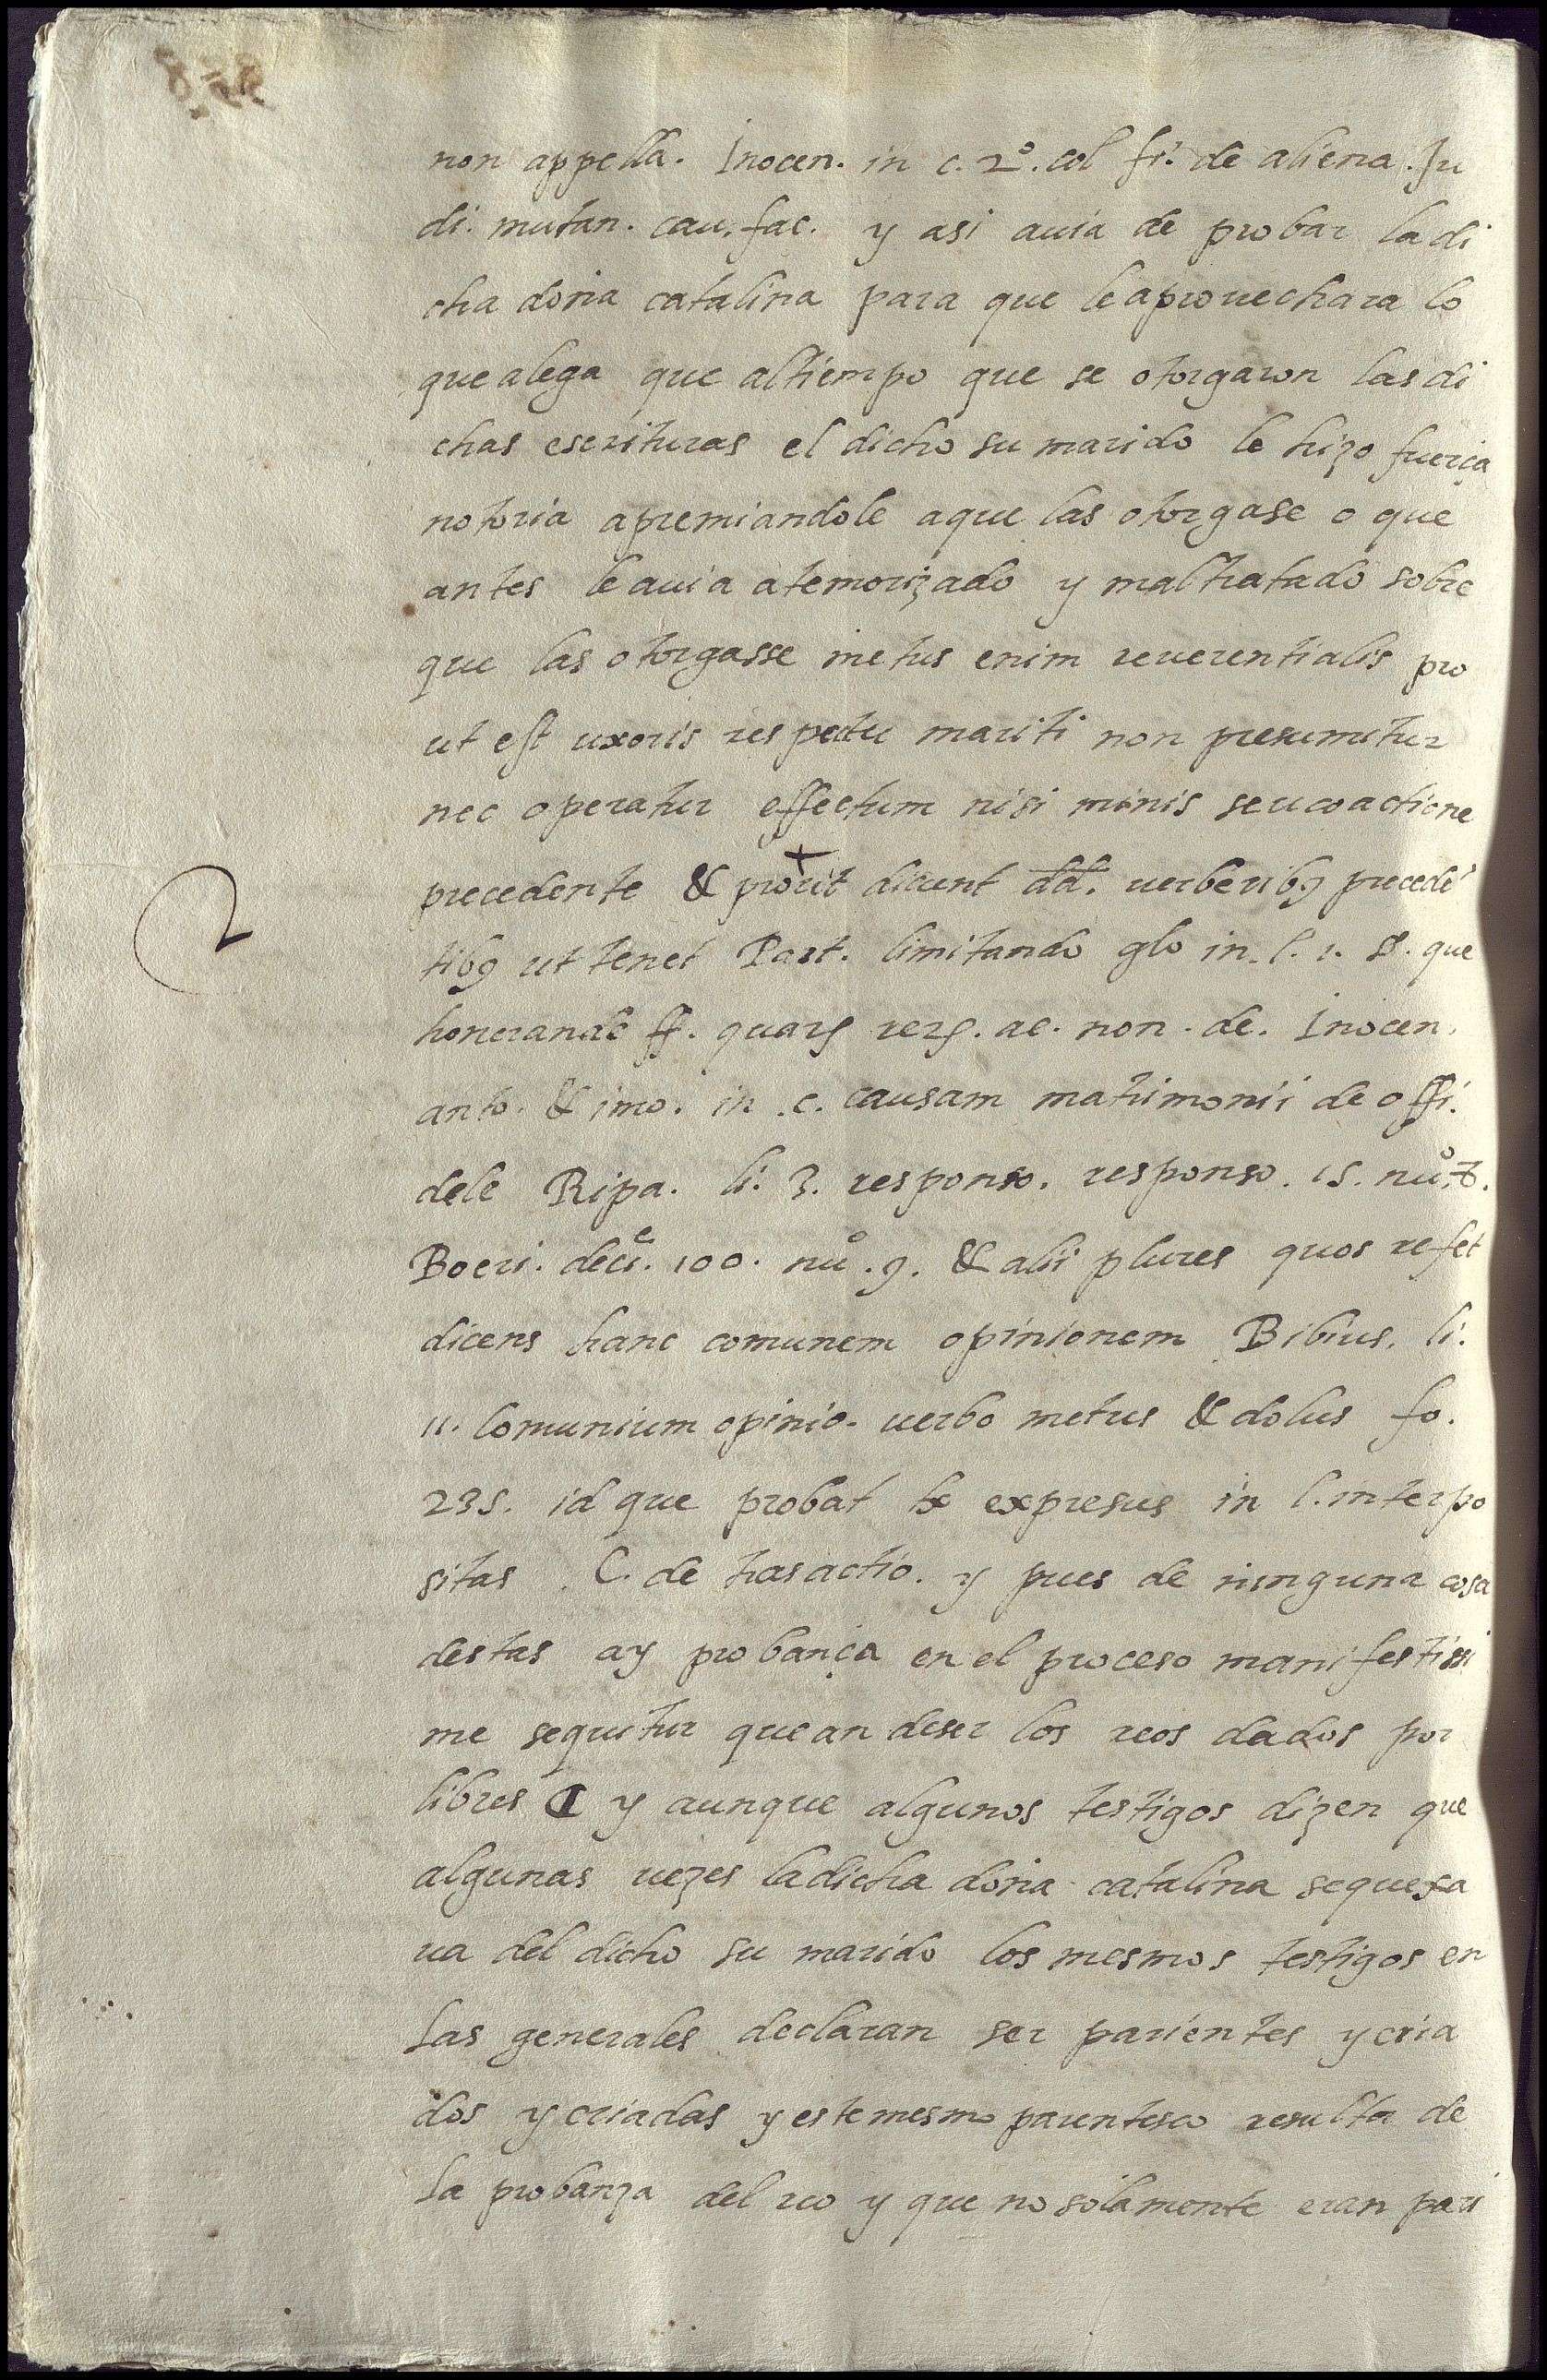 non appella. Inocen. in c. 2º. col fi. de aliena. Ju
di. mutan. cau. fac. y asi auia de probar la di
cha doña catalina para que le aprouechara lo
que alega que al tiempo que se otorgaron las di
chas escrituras el dicho su marido le hizo fuerça
notoria apremiandole a que las otorgase o que
antes le auia atemorizado y maltratado sobre
que las otorgasse metus enim reuerentialis pro
ut est uxoris respectu mariti non presumitur
nec operatur effectum nisi minis seu coactione
precedente & prout dicunt dd. uerberibꝯ precedẽ
tibꝯ ut tenet Bart. limitando glo in. l. 1. §. que
honerande ff. quarꝝ rerꝝ. ac. non. de. Inocen.
anto. & imo. in .c. causam matrimonii de offi.
dele Ripa. li. 3. responso. responso. 15. nuº. 7.
Boeri. deciᵉ. 100. nuº. 9. & alii plures quos refet
dicens hanc comunem opinionem Bibius. li.
11. comunium opinio. uerbo metus & dolus fo.
235. id que probat tx expresus in l. interpo
sitas . C. de trasactio. y pues de ninguna cosa
destas ay probança en el proceso manifestissi
me sequitur que an de ser los reos dados por
libres ¶ y aunque algunos testigos dizen que
algunas uezes la dicha doña catalina se quexa
ua del dicho su marido los mesmos testigos en
las generales declaran ser parientes y cria
dos y criadas y este mesmo parentesco resulta de
la probanza del reo y que no solamente eran pari